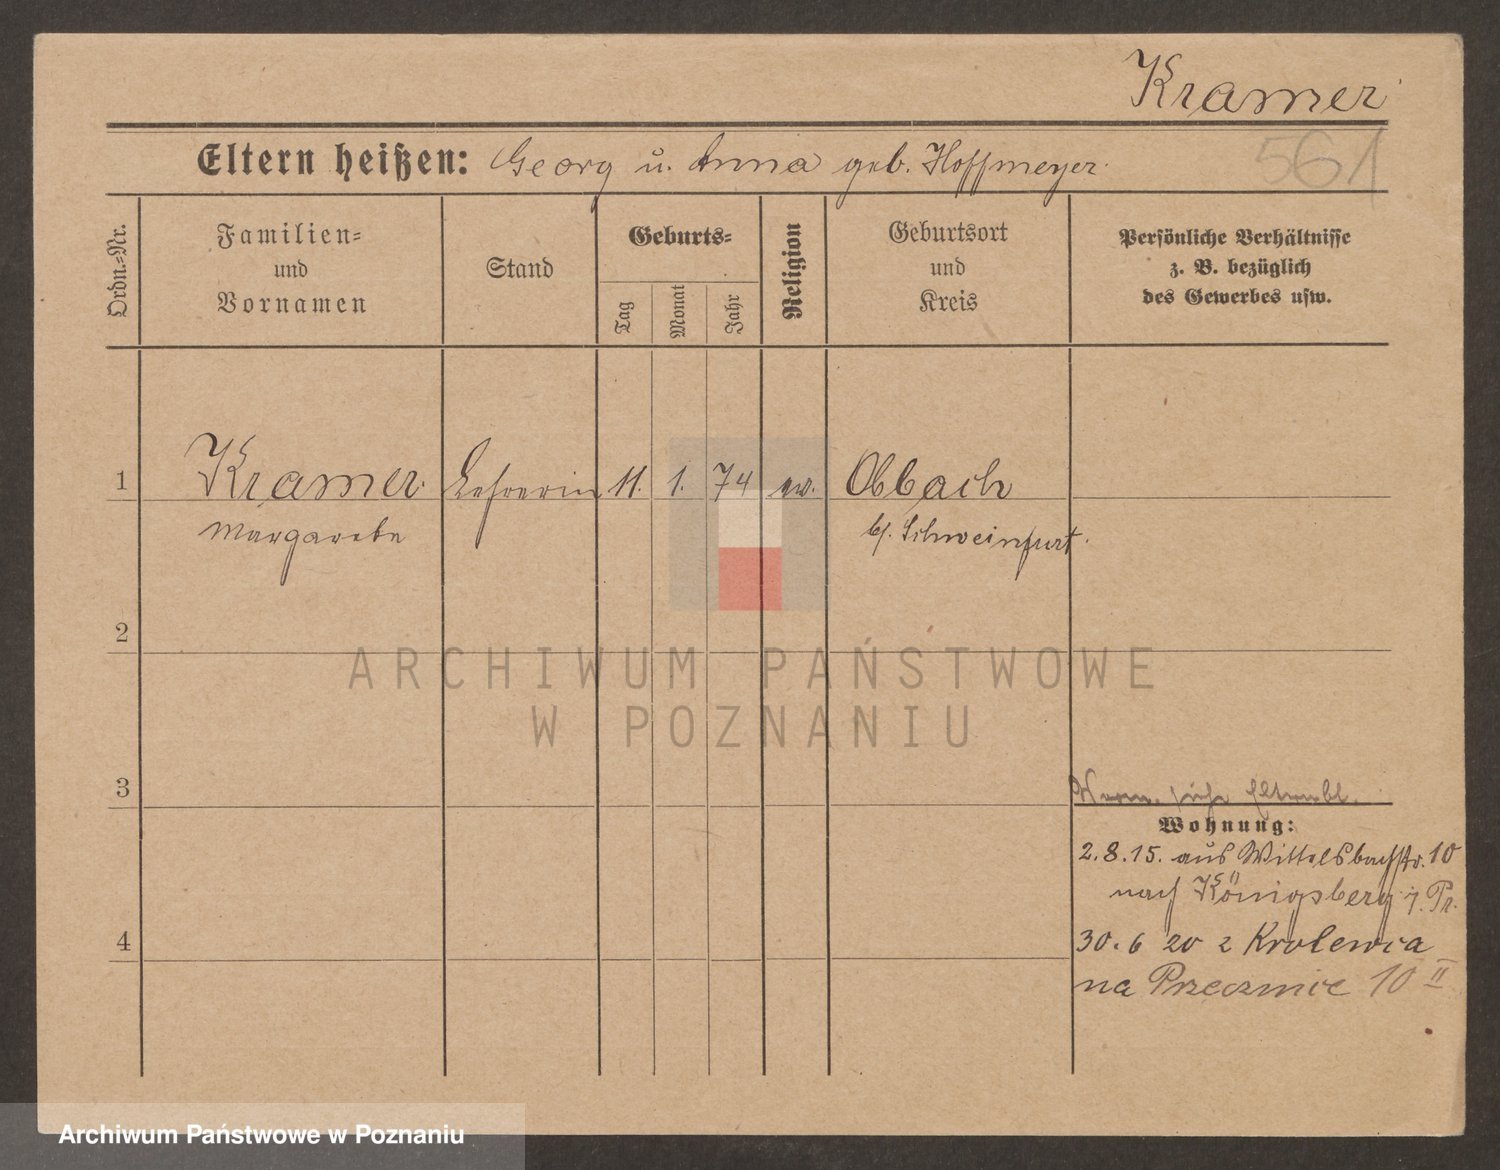 Kramer
561
Eltern heißen: Georg u. Anna geb. Hoffmeyer.
Ordn.-Nr.
Familien-
und
Vornamen
Stand
Geburts-
Tag
Monat
Jahr
Religion
Geburtsort
und
Kreis
Persönliche Verhältnisse
z. B. bezüglich
des Gewerbes usw.
1 Kramer Lehrerin 11. 1. 74 ev. Obbach
Margarete b/. Schweinfurt.
2
3
siehe Elternbl.
Wohnung:
2.8.15. aus Wittelsbachstr. 10
nach Königsberg i. Pr.
4
30.6 20 z Krolewca
na Przecznice 10 II
ARCHIWUM PAŃSTWOWE
W POZNANIU
Archiwum Państwowe w Poznaniu